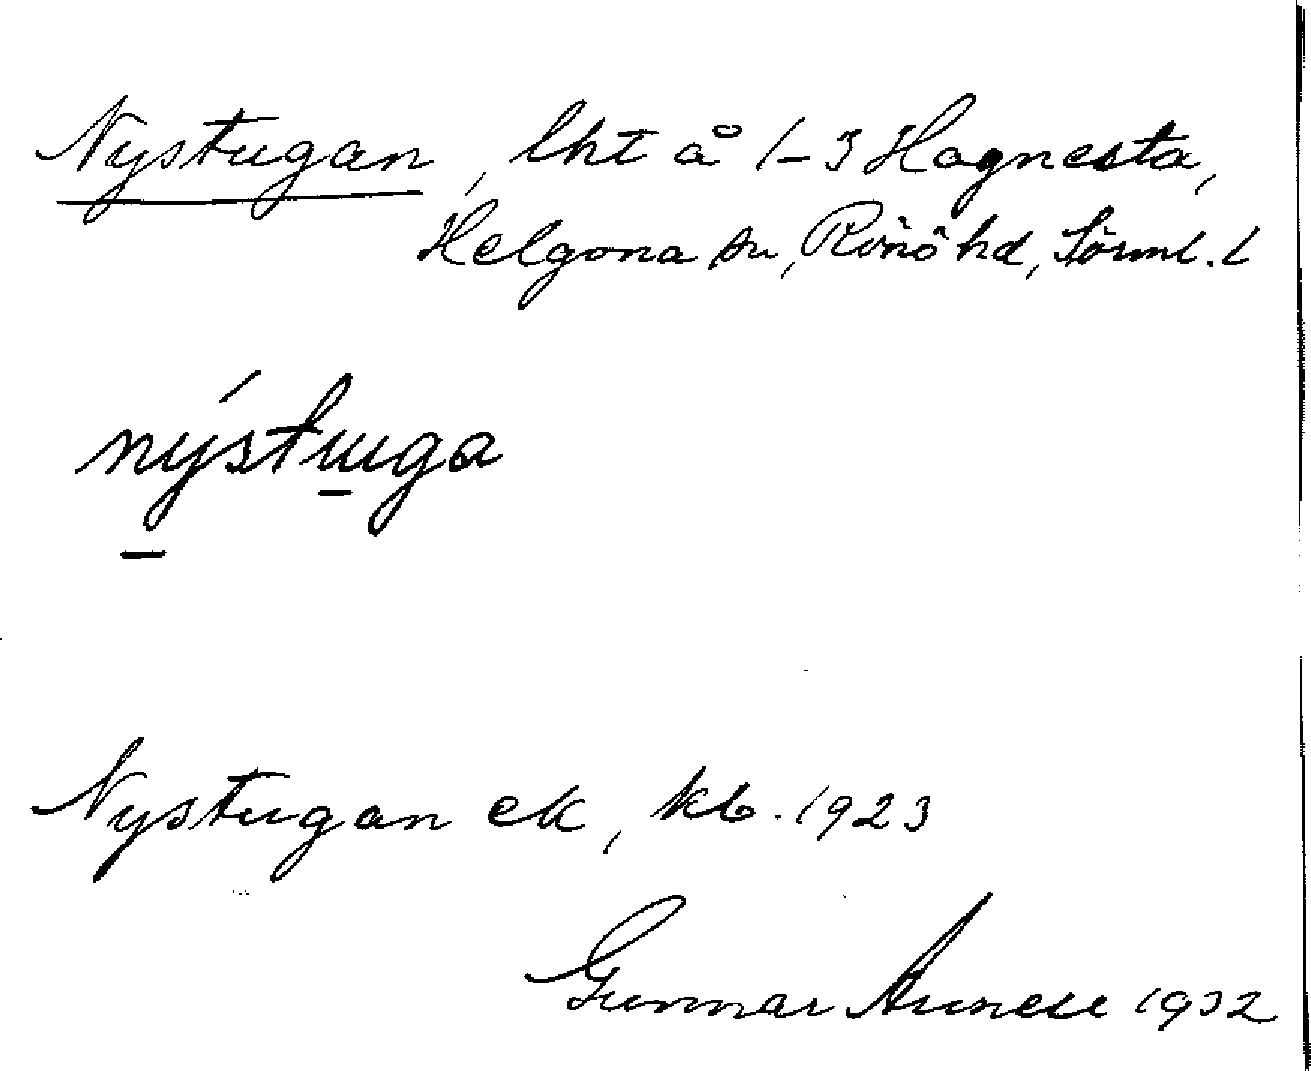 Nystugan, lht å 1-3 Hagnesta,
Helgona sn, Rönö hd, Sörml. l
nýstuga
Nystugan ek, kb. 1923
Gunnar 1932